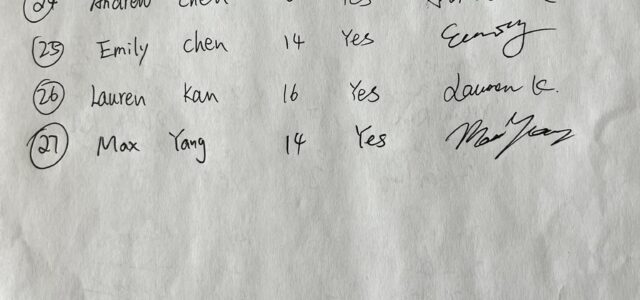 24 Andrew Chen Yes
25 Emily chen 14 Yes Emily
26 Lauren Kan 16 Yes Lauren K.
27 Max Yang 14 Yes Max Yang